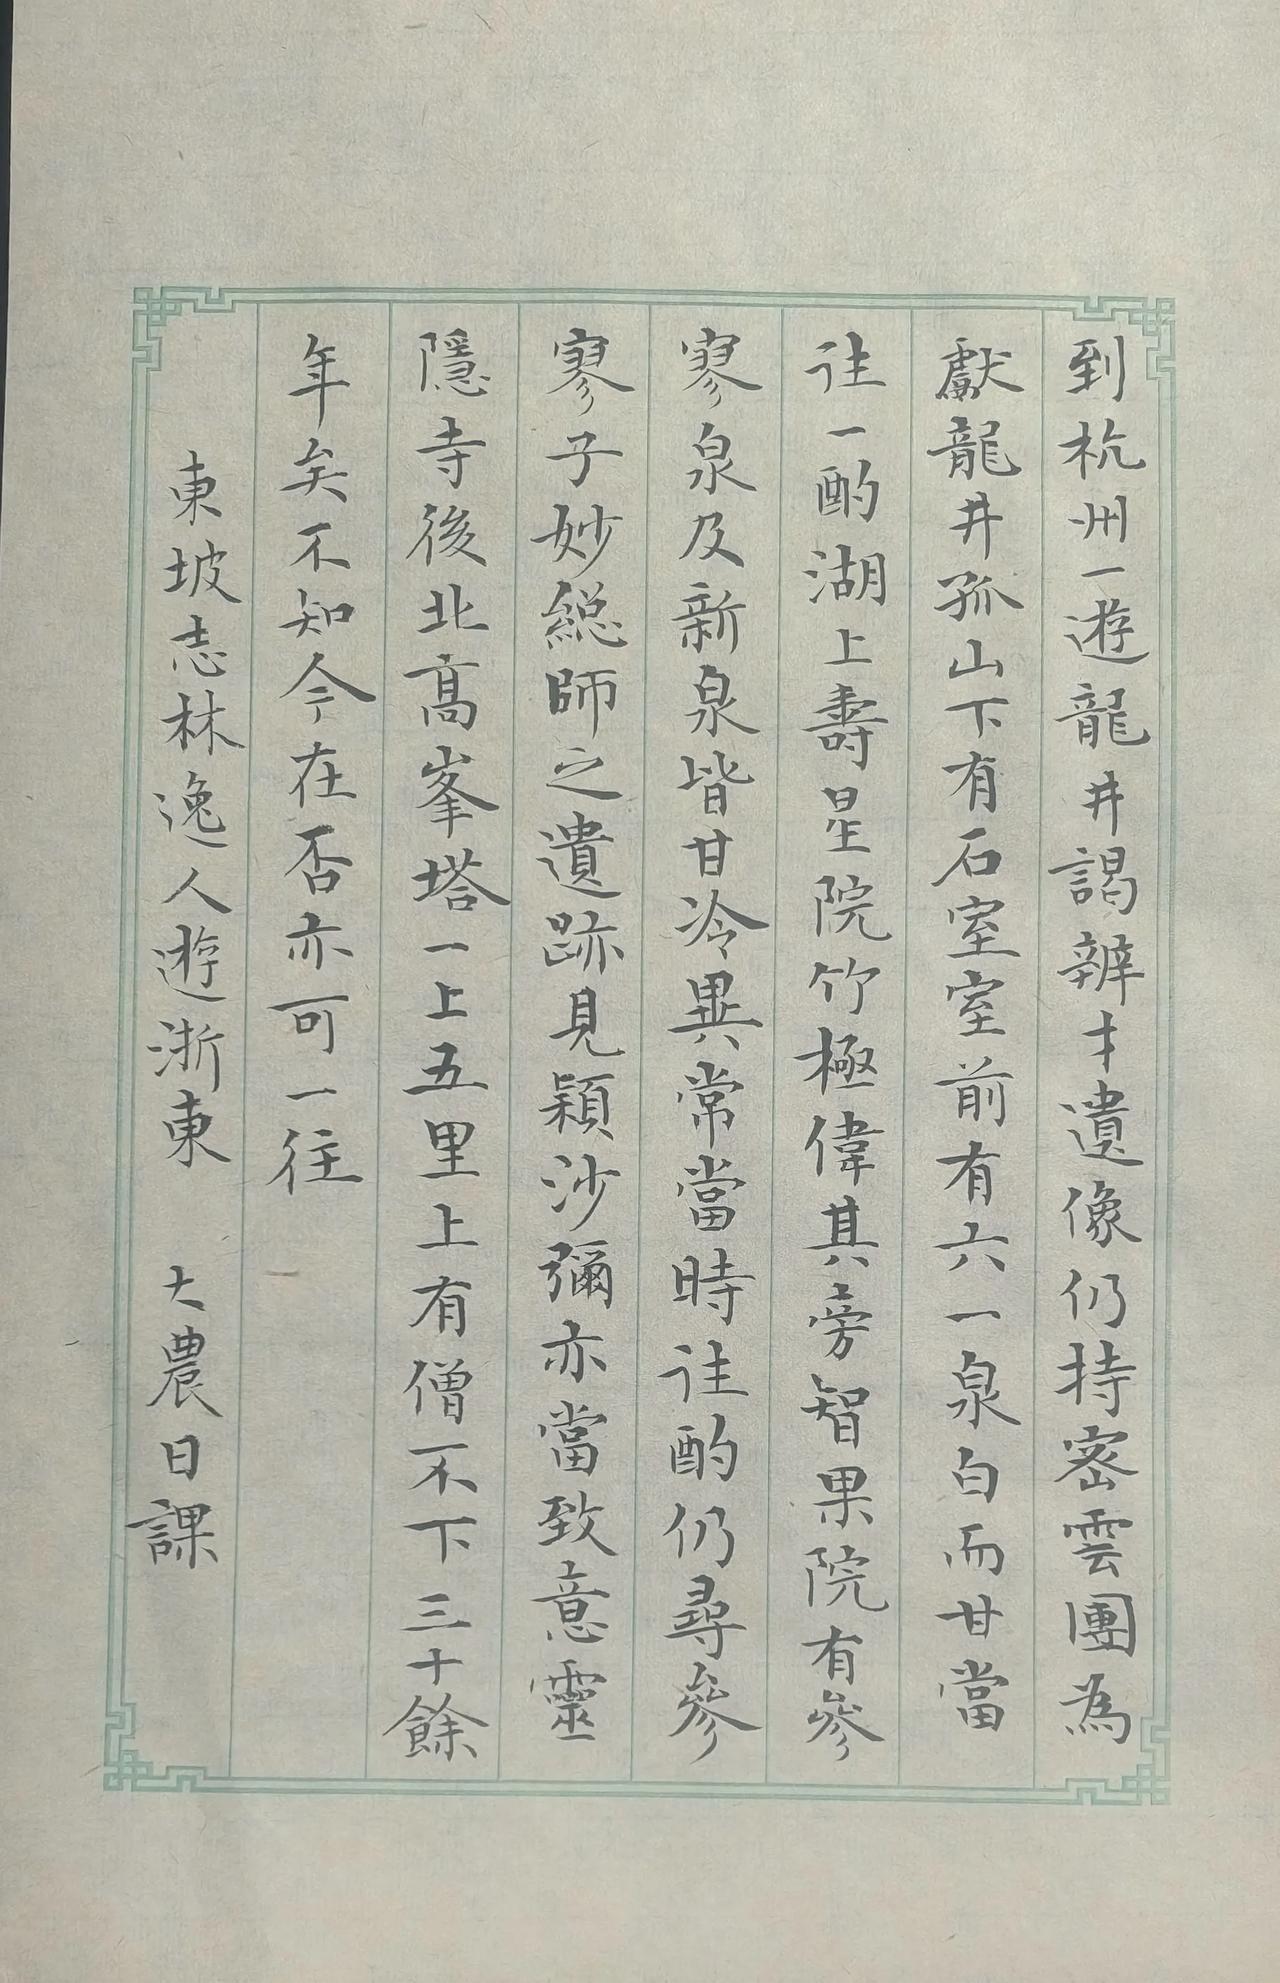 到杭州一遊龍井謁辨才遺像仍持密雲團為
獻龍井孤山下有石室室前有六一泉白而甘當
往一酌湖上壽星院竹極偉其旁智果院有參
寥泉及新泉皆甘冷異常當時往酌仍尋參
寥子妙総師之遺跡見穎沙彌亦當致意靈
隱寺後北高峯塔一上五里上有僧不下三十餘
年矣不知今在否亦可一往
東坡志林逸人遊浙東 大農日課